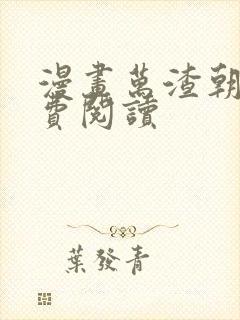 漫畫萬渣朝
費閱讀
葉發青